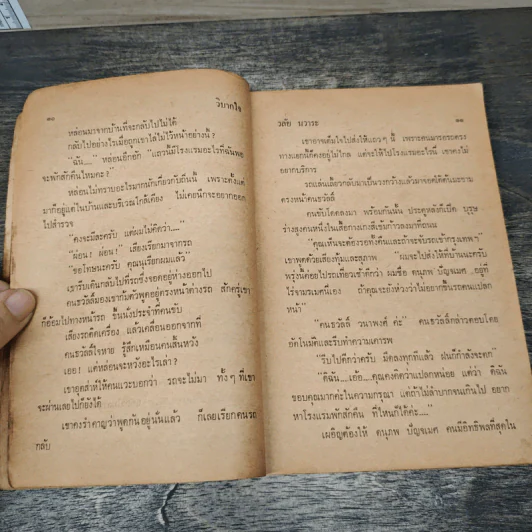 ๑๐ วิบากใจ
หล่อนมาจากบ้านที่จะกลับไปไม่ได้
กลับไปอย่างไรเมื่อถูกเขาไล่ไม่ไว้หน้าอย่างนี้ ?
"ดิฉัน...." หล่อนอึกอัก "แถวนี้มีโรงแรมอะไรที่ฉันพอ
จะพักสักคืนไหมคะ ?"
หล่อนไม่ทราบอะไรมากนักเกี่ยวกับถิ่นนี้ เพราะตั้งแต่
มาก็อยู่แต่ในบ้านและบริเวณใกล้เคียง ไม่เคยนึกจะอยากออก
ไปสำรวจ
"คงจะมีละครับ แต่ผมไม่คิดว่า...."
"ผ่อน ! ผ่อน !" เสียงเรียกมาจากรถ
"ขอโทษนะครับ คุณนุเรียกผมแล้ว"
เขารีบเดินกลับไปที่รถซึ่งจอดอยู่ห่างออกไป
คนชวัลลิ์มองเขาก้มตัวพูดอยู่ตรงหน้าต่างรถ สักครู่เขา
ก็อ้อมไปทางหน้ารถ ขึ้นนั่งประจำที่คนขับ
เสียงรถติดเครื่อง แล้วเคลื่อนออกจากที่
คนชวัลลิ์ใจหาย รู้สึกเหมือนคนสิ้นหวัง
เออ ! แต่หล่อนจะหวังอะไรเล่า ?
เขาอุตส่าห์ให้คนแวะบอกว่า รถจะไม่มา ทั้ง ๆ ที่เขา
จะผ่านเลยไปก็ยังได้
เขาคงรำคาญว่าพูดกันอยู่นั่นแล้ว ก็เลยเรียกคนรถ
กลับ
วลัย นวาระ ๑๑
เขาอาจเต็มใจไปส่งให้แถว ๆ นี้ เพราะคนมารอรถตรง
ทางแยกนี้ก็คงอยู่ไม่ไกล แต่จะให้ไปโรงแรมอะไรนี่ เขาคงไม่
อยากบริการ
รถแล่นเลี้ยวกลับมาเป็นวงกว้างแล้วมาจอดได้คันมะขาม
ตรงหน้าคนชวัลลิ์
ผ่อนขับโดดลงมา พร้อมกันนั้น ประตูหลังก็เปิด บุรุษ
ร่างสูงคนหนึ่งในเสื้อกางเกงสีเข้มก้าวลงมาที่ถนน
"คุณเห็นจะต้องรอทั้งคืนและถ้าจะขึ้นรถเข้ากรุงเทพฯ"
เขาพูดด้วยเสียงทุ้มและสุภาพ "ผมจะไปส่งให้ที่บ้านนะครับ
พรุ่งนี้ค่อยไปรถเที่ยวเช้าดีกว่า ผมชื่อ คนุภพ บัญจเมศ อยู่ที่
ไร่งามรเมศนี่เอง ถ้าคุณจะยังห่วงว่าไม่อยากขึ้นรถคนแปลก
หน้า"
"คนชวัลลิ์ วนาพงศ์ ค่ะ" คนชวัลลิ์กล่าวตอบโดย
ชักในมิตและรีบทำความเคารพ
"รีบไปดีกว่าครับ มืดลงทุกทีแล้ว ฝนก็กำลังจะตก"
"ดิฉัน....เอ้อ....คุณคงคิดว่าแปลกหน่อย แต่ว่า ดิฉัน
ขอบคุณมากค่ะในความกรุณา แต่ถ้าไม่ลำบากจนเกินไป อยาก
หาโรงแรมพักสักคืน ที่ไหนก็ได้ค่ะ...."
เผอิญต้องให้ คนุภพ บัญจเมศ คนมีอิทธิพลที่สุดใน